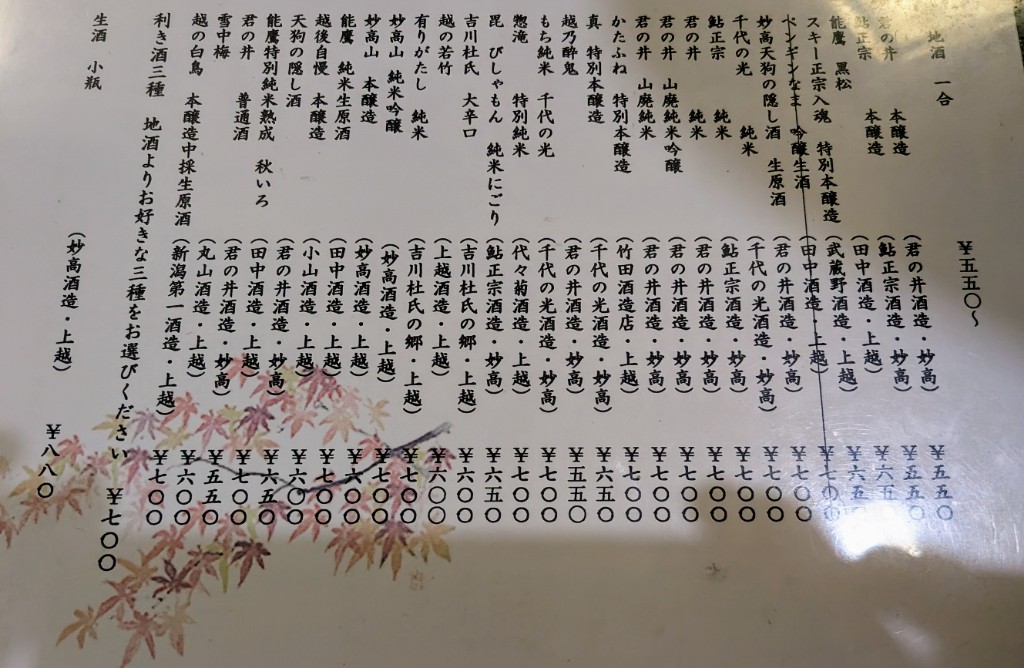 地酒 一合 ¥五五〇〜
君の井 本醸造 (君の井酒造・妙高) ¥五五〇
鮎正宗 本醸造 (鮎正宗酒造・妙高) ¥五五〇
能鷹 黒松 (田中酒造・上越) ¥六五〇
スキー正宗入魂 特別本醸造 (武蔵野酒造・上越) ¥六五〇
ペンギンなま 吟醸生酒 (田中酒造・上越) ¥七〇〇
妙高天狗の隠し酒 生原酒 (君の井酒造・妙高) ¥七〇〇
千代の光 純米 (千代の光酒造・妙高) ¥七〇〇
鮎正宗 純米 (鮎正宗酒造・妙高) ¥七〇〇
君の井 純米 (君の井酒造・妙高) ¥七〇〇
君の井 山廃純米吟醸 (君の井酒造・妙高) ¥七〇〇
君の井 山廃純米 (君の井酒造・妙高) ¥七〇〇
かたふね 特別本醸造 (竹田酒造店・上越) ¥七〇〇
真 特別本醸造 (千代の光酒造・妙高) ¥六五〇
越乃酔鬼 (君の井酒造・妙高) ¥五五〇
もち純米 千代の光 (千代の光酒造・妙高) ¥七〇〇
惣滝 特別純米 (代々菊酒造・上越) ¥七〇〇
毘 びしゃもん 純米にごり (鮎正宗酒造・妙高) ¥六五〇
吉川杜氏 大辛口 (吉川杜氏の郷・上越) ¥六〇〇
越の若竹 (上越酒造・上越) ¥六〇〇
有りがたし 純米 (吉川杜氏の郷・上越) ¥七〇〇
妙高山 純米吟醸 (妙高酒造・上越) ¥七〇〇
妙高山 本醸造 (妙高酒造・上越) ¥六〇〇
能鷹 純米生原酒 (田中酒造・上越) ¥七〇〇
越後自慢 本醸造 (小山酒造・上越) ¥六〇〇
天狗の隠し酒 (君の井酒造・妙高) ¥六五〇
能鷹特別純米熟成 秋いろ (田中酒造・上越) ¥七〇〇
君の井 普通酒 (君の井酒造・妙高) ¥五五〇
雪中梅 (丸山酒造・上越) ¥六〇〇
越の白鳥 本醸造中採生原酒 (新潟第一酒造・上越) ¥七〇〇
利き酒三種 地酒よりお好きな三種をお選びください ¥七〇〇
生酒 小瓶 (妙高酒造・上越) ¥八八〇